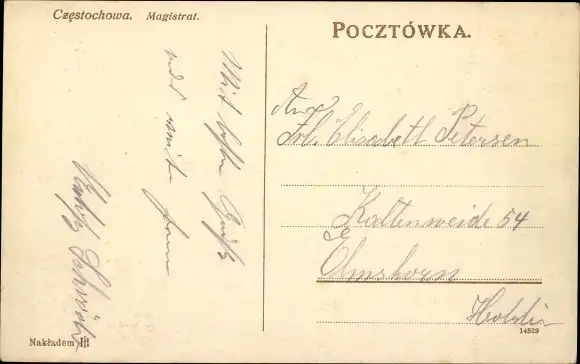 Częstochowa. Magistrat.
POCZTÓWKA.
Mit beste Grüße
und
An
Frl. Elisabeth Petersen
Kaltenweide 54
Elmshorn
Holstein
Nakładem
14529